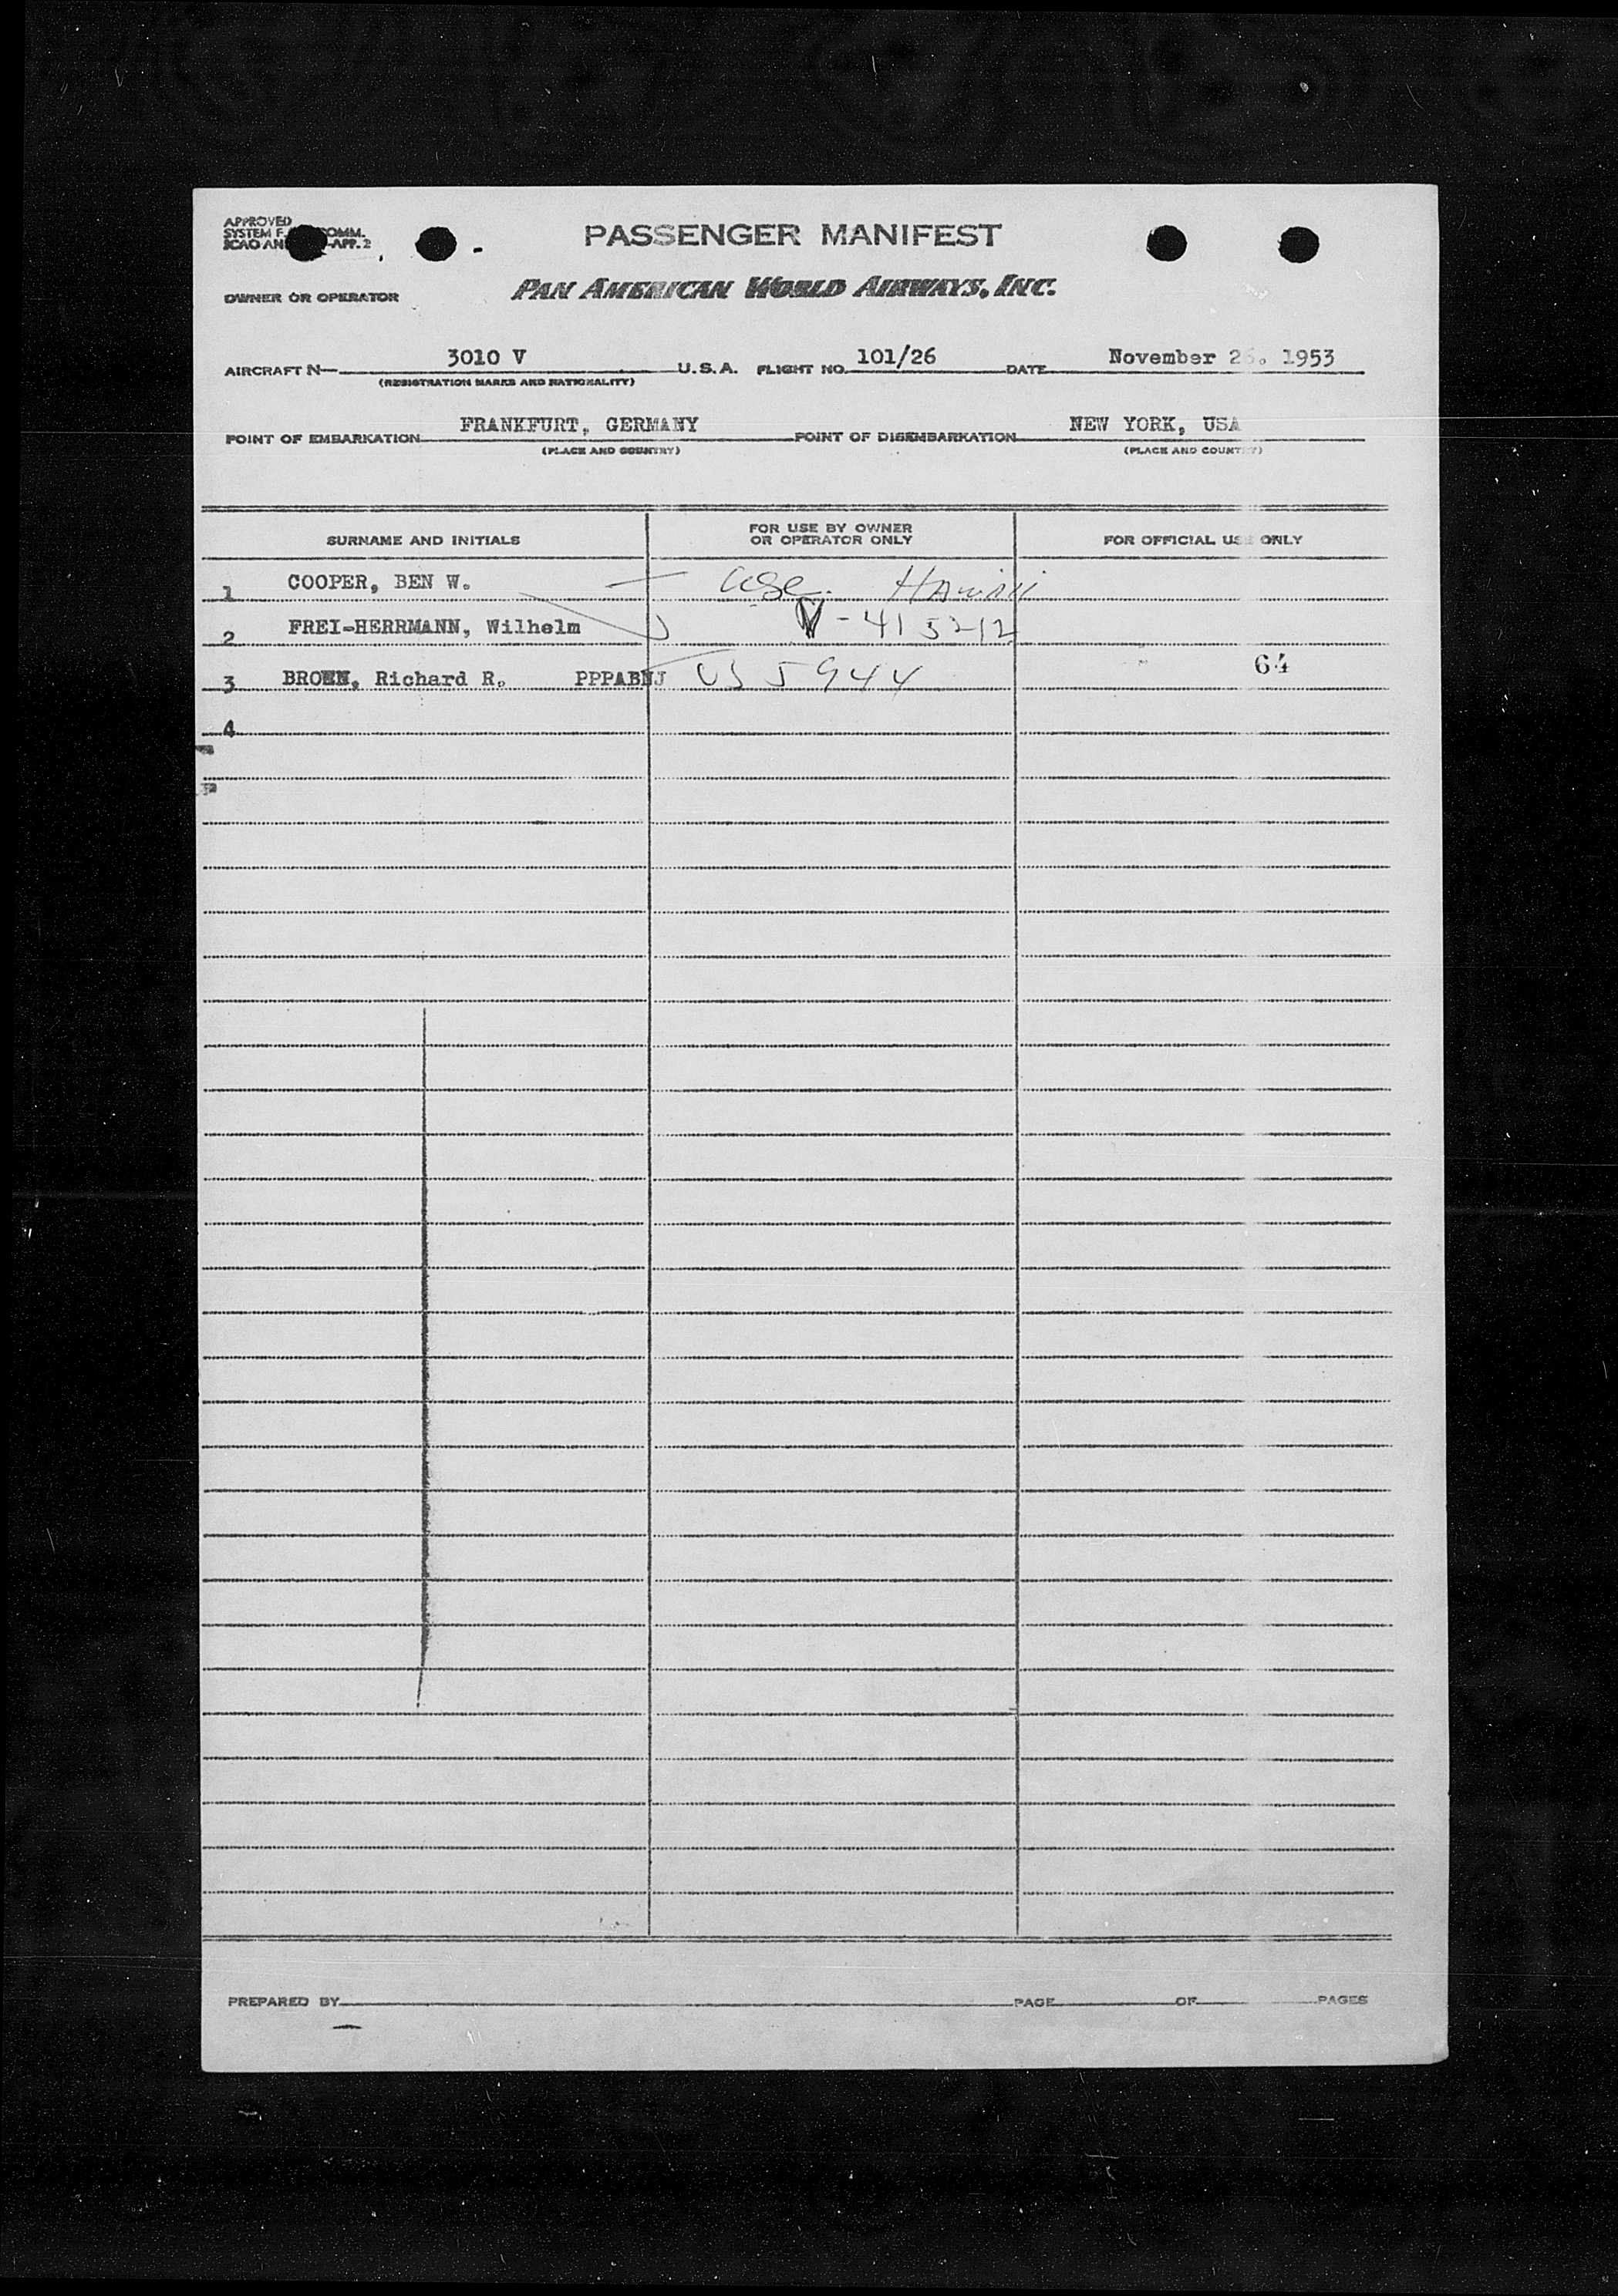 APPROVED
SYSTEM F. COMM.
ICAO AN -APP. 2
PASSENGER MANIFEST
OWNER OR OPERATOR PAN AMERICAN WORLD AIRWAYS, INC.
AIRCRAFT N— 3010 V U.S.A. FLIGHT NO. 101/26 DATE November 26. 1953
(REGISTRATION MARKS AND NATIONALITY)
POINT OF EMBARKATION FRANKFURT, GERMANY POINT OF DISEMBARKATION NEW YORK, USA
(PLACE AND COUNTRY) (PLACE AND COUNTRY)
SURNAME AND INITIALS FOR USE BY OWNER OR OPERATOR ONLY FOR OFFICIAL USE ONLY
1 COOPER, BEN W. Hawaii
2 FREI-HERRMANN, Wilhelm V-415212
3 BROWN, Richard R. PPPABNJ US 5944 64
4
PREPARED BY PAGE OF PAGES